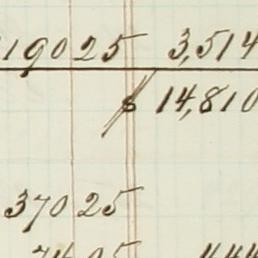 19025 3,514
$ 14,810
37025